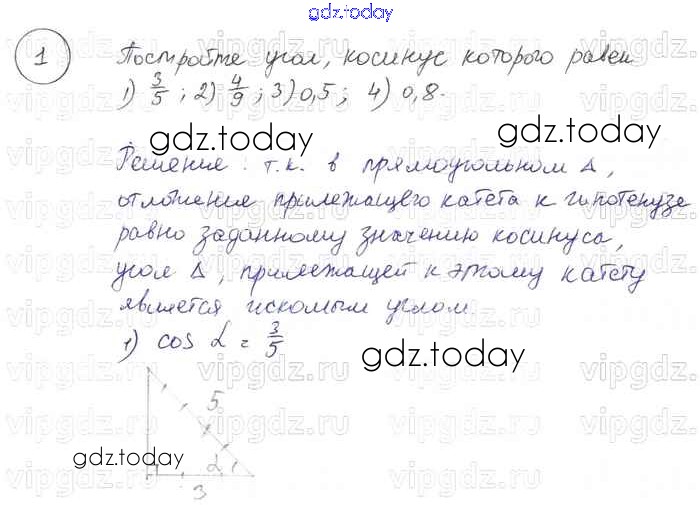 gdz.today
1 Постройте угол, косинус которого равен
1) 3/5 ; 2) 4/9 ; 3) 0,5 ; 4) 0,8.
gdz.today
Решение : т.к. в прямоугольном Δ,
отношение прилежащего катета к гипотенузе
равно заданному значению косинуса,
угол Δ, прилежащей к этому катету
является искомым углом.
1) cos α = 3/5
gdz.today
5
gdz.today
α
3
vipgdz.ru